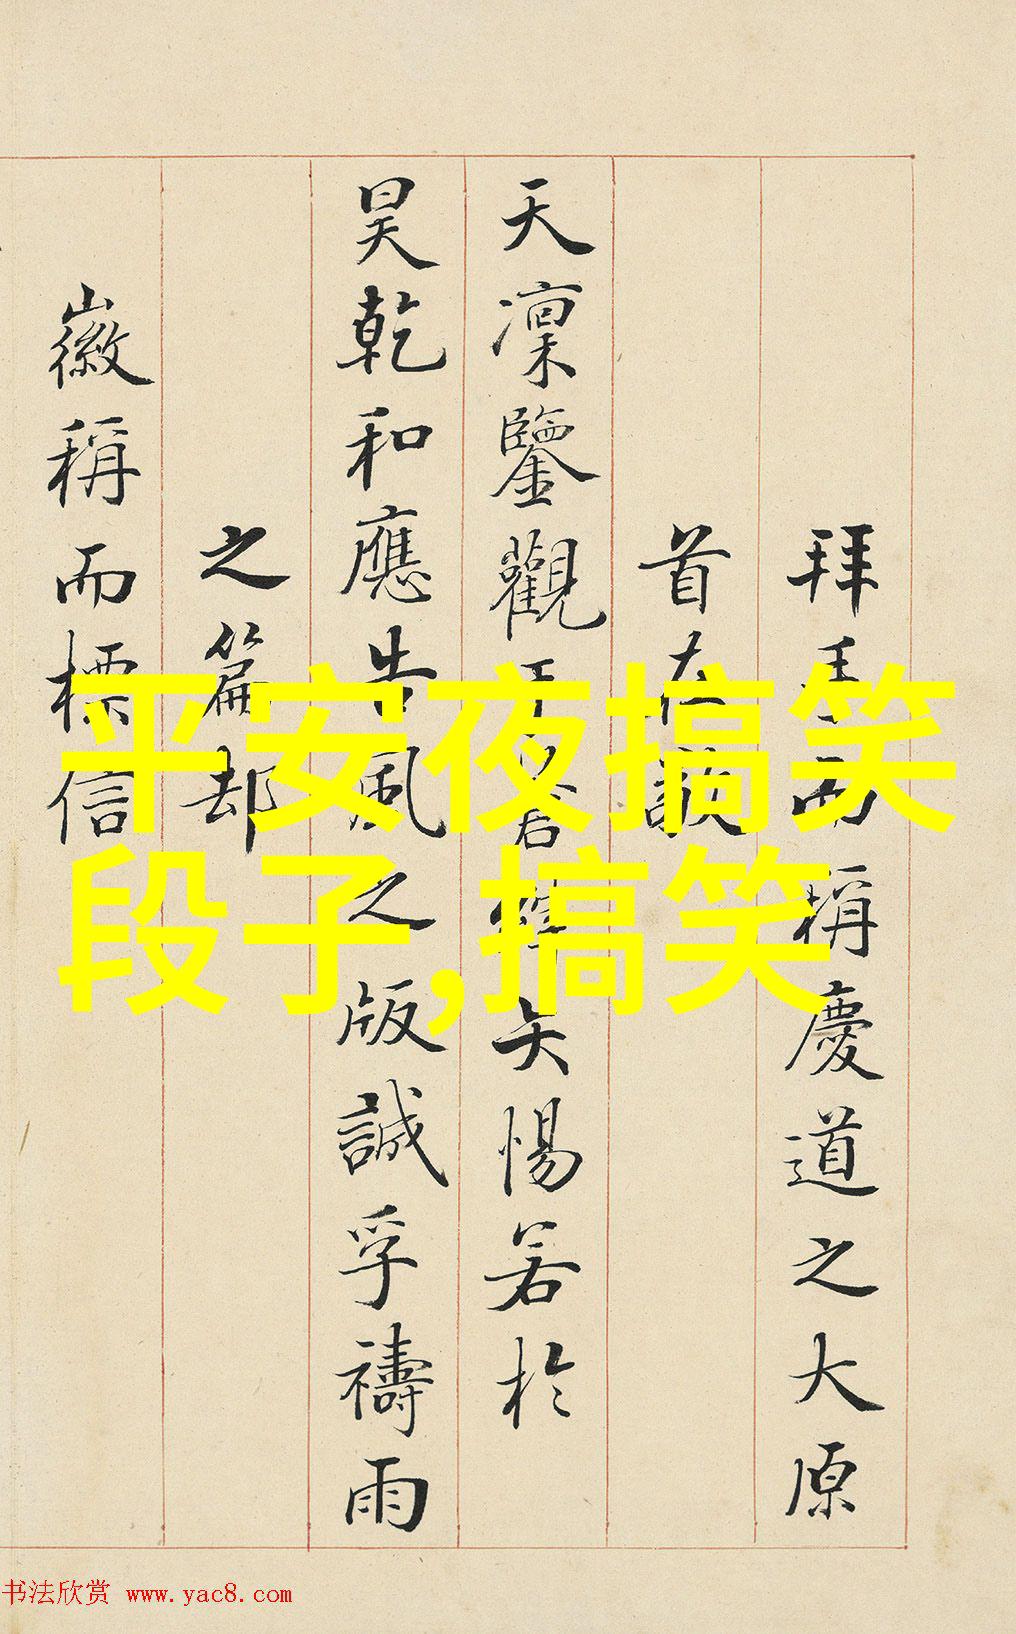 拜手而稱慶道之大原
首在誠
天凜鑒觀
矢惕若於
昊乾和應告風之版誠孚禱雨
之篇却
徽稱而標信
平安夜搞笑
段子,搞笑
书法欣赏 www.yac8.com